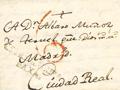 A Dn Alvaro Muñoz
y Teruel
Madrid.
Ciudad Real.